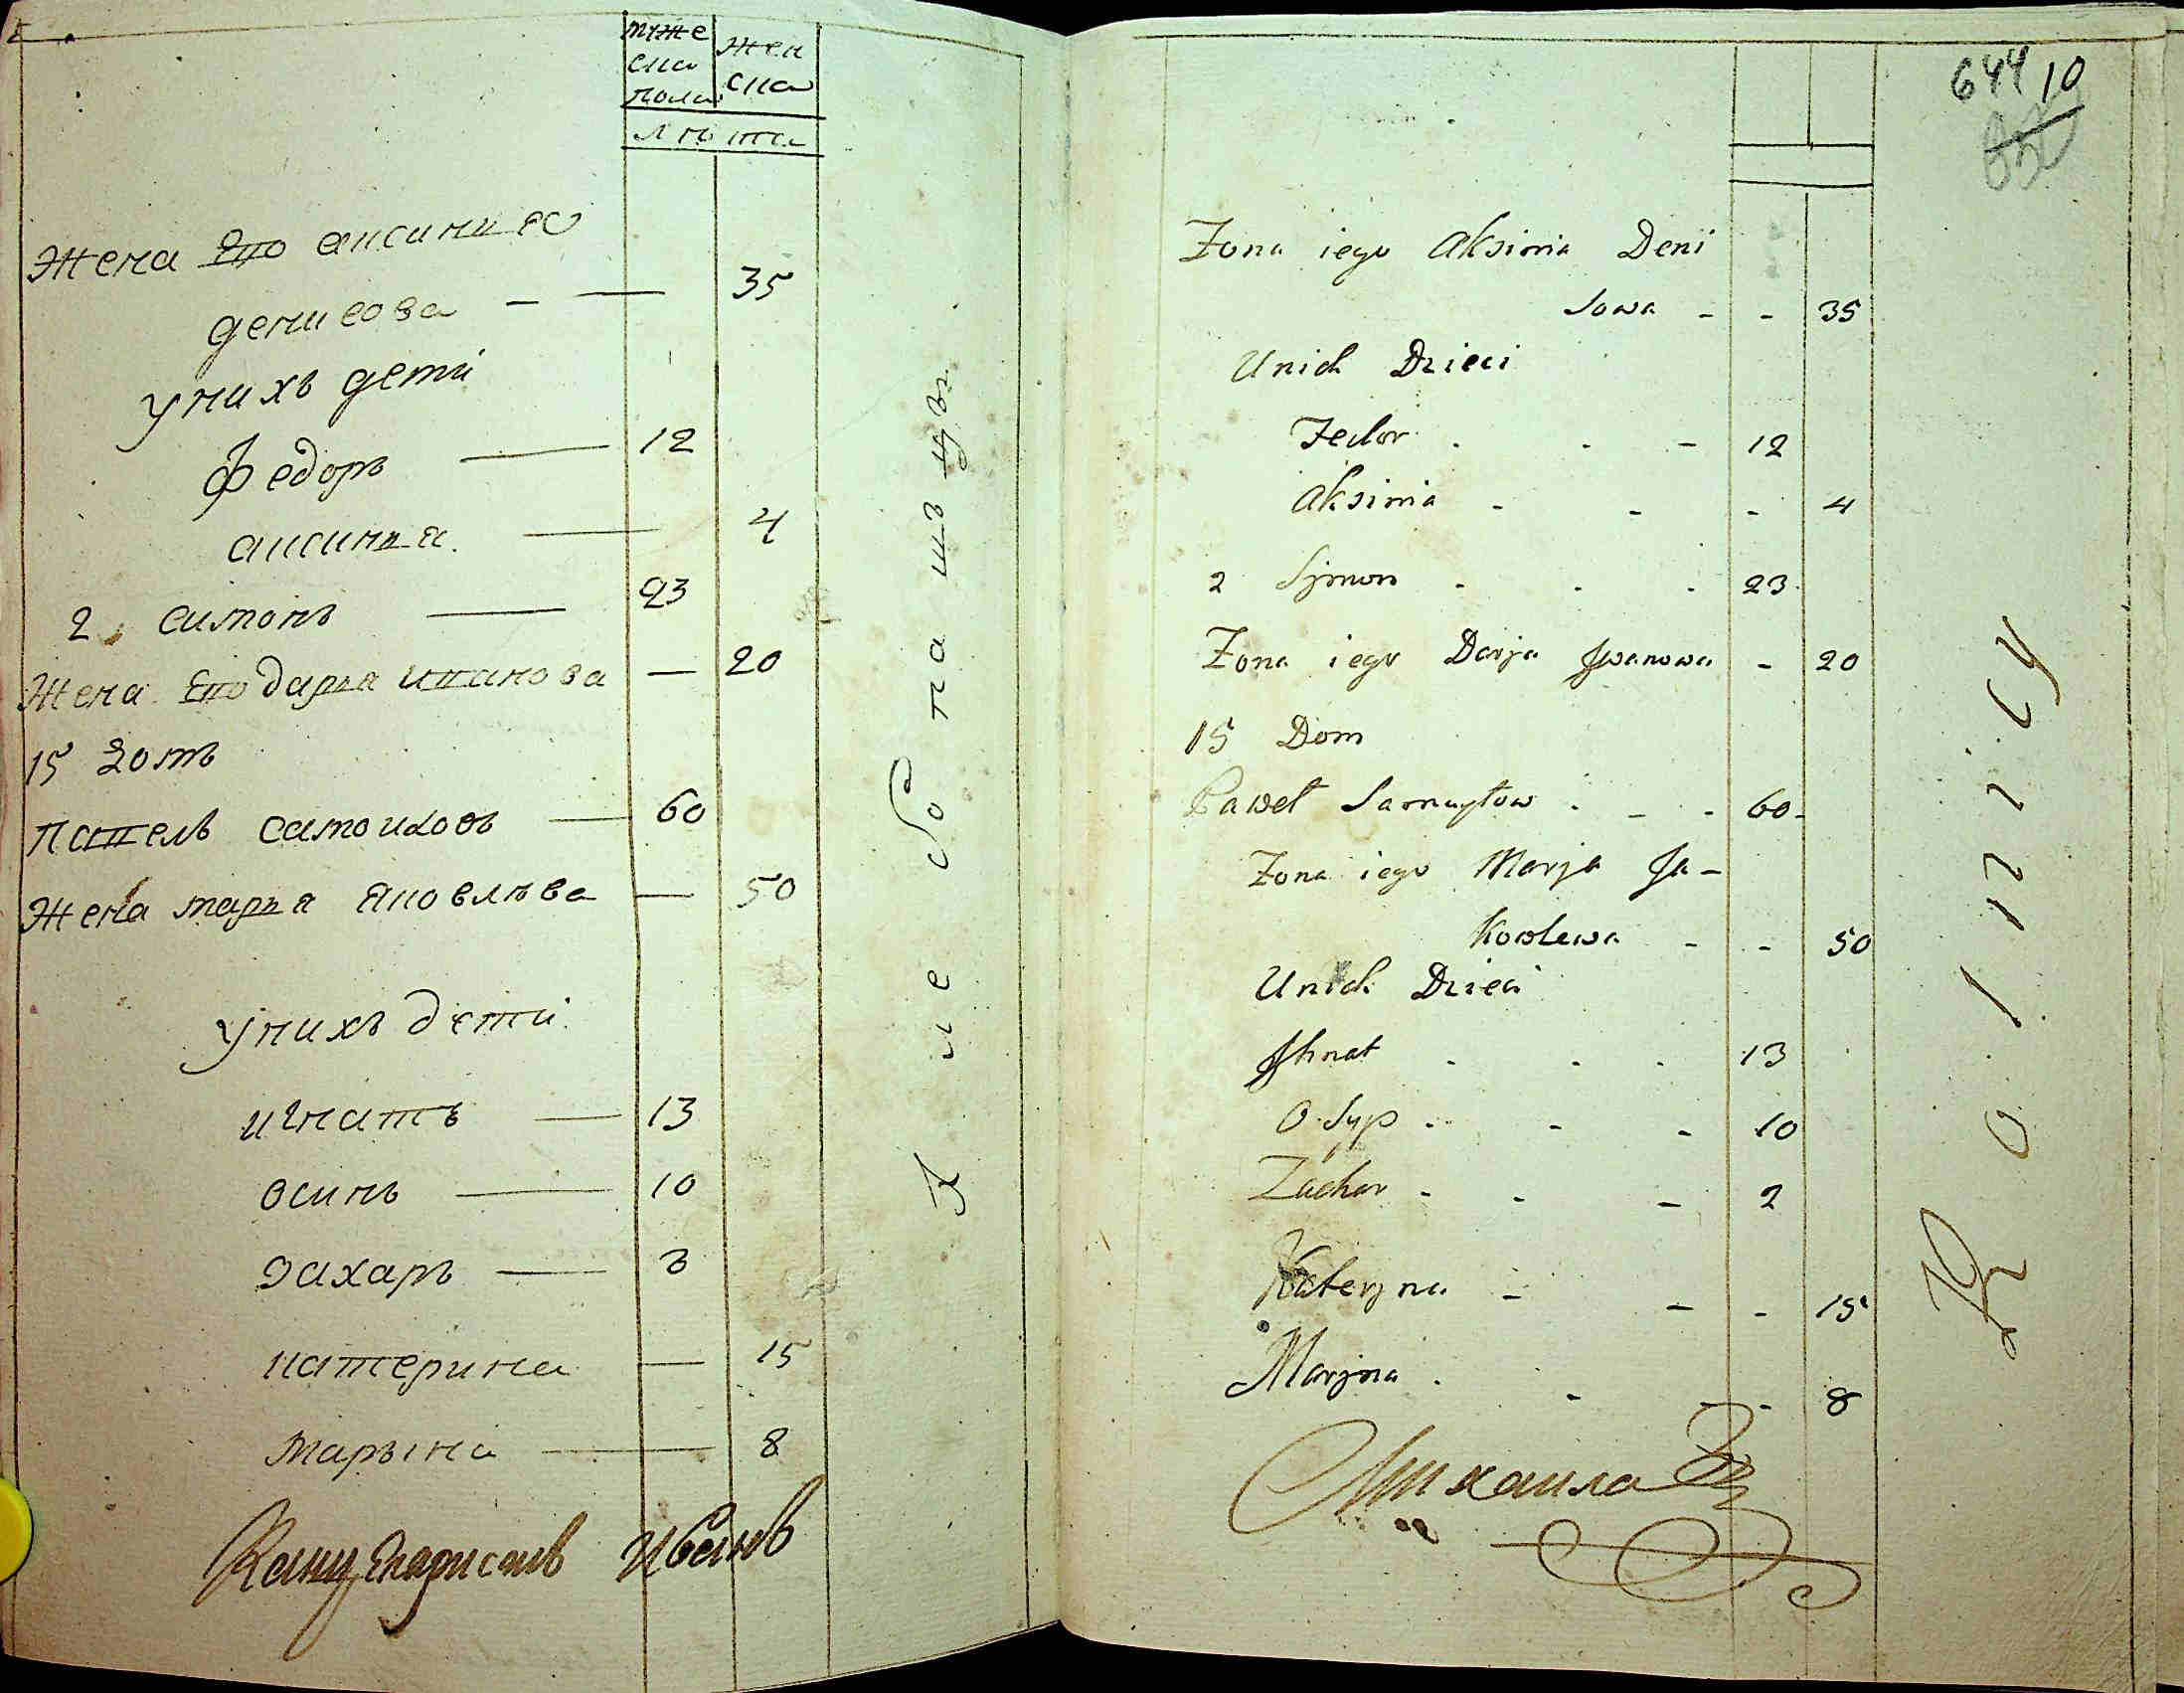 муже
ска
пола
жен
ска
лѣта
жена его аксиния
денисова — — 35
у нихъ дети
федоръ — 12
аксиния — 4
2 симонъ — 23
жена его дарья иванова — 20
15 домъ
павелъ самоиловъ — 60
жена марья яковлѣва — 50
у нихъ дети
игнатъ — 13
осипъ — 10
захаръ — 3
катерина — 15
марына — 8
Иванов
644 10
Zona iego Aksinia Deni
sowa - - 35
U nich Dzieci
Fedor - - 12
Aksinia - - - 4
2 Symon - - - 23
Zona iego Darja Jwanowa - 20
15 Dom
Paweł Samuyłow - - - 60
Zona iego Marja Ja-
kowlewa - - 50
U nich Dzieci
Jhnat - - - 13
Osyp - - - 10
Zachar - - - 2
Kateryna - - - 15
Maryna - - - 8
Михаила